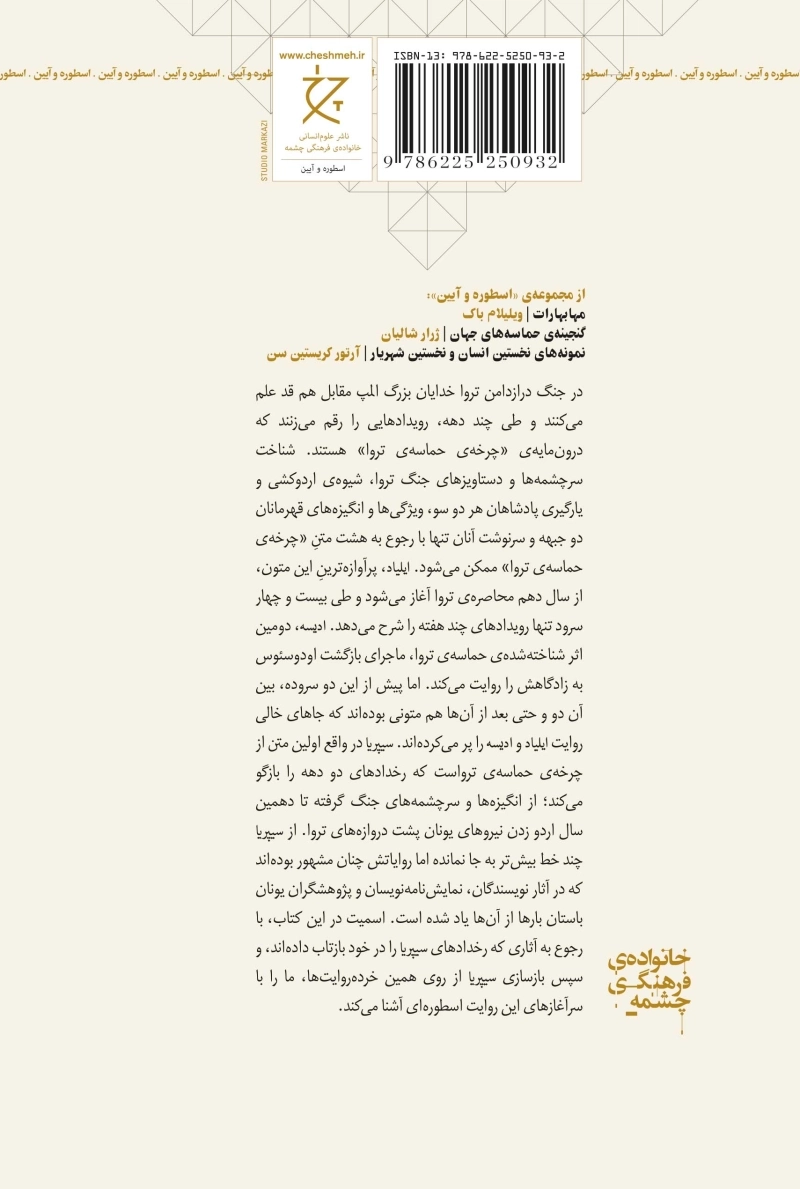 اسطوره و آیین . اسطوره و آیین . اسطوره و آیین . اسطوره و آیین
www.cheshmeh.ir
ناشر علوم‌انسانی
خانواده‌ی فرهنگی چشمه
اسطوره و آیین
STUDIO MARKAZI
ISBN-13: 978-622-5250-93-2
9 786225 250932
از مجموعه‌ی «اسطوره و آیین»:
مهابهارات | ویلیلام باک
گنجینه‌ی حماسه‌های جهان | ژرار شالیان
نمونه‌های نخستین انسان و نخستین شهریار | آرتور کریستین سن
در جنگ درازدامن تروا خدایان بزرگ المپ مقابل هم قد علم
می‌کنند و طی چند دهه، رویدادهایی را رقم می‌زنند که
درون‌مایه‌ی «چرخه‌ی حماسه‌ی تروا» هستند. شناخت
سرچشمه‌ها و دستاویزهای جنگ تروا، شیوه‌ی اردوکشی و
یارگیری پادشاهان هر دو سو، ویژگی‌ها و انگیزه‌های قهرمانان
دو جبهه و سرنوشت آنان تنها با رجوع به هشت متنِ «چرخه‌ی
حماسه‌ی تروا» ممکن می‌شود. ایلیاد، پرآوازه‌ترینِ این متون،
از سال دهم محاصره‌ی تروا آغاز می‌شود و طی بیست و چهار
سرود تنها رویدادهای چند هفته را شرح می‌دهد. ادیسه، دومین
اثر شناخته‌شده‌ی حماسه‌ی تروا، ماجرای بازگشت اودوسئوس
به زادگاهش را روایت می‌کند. اما پیش از این دو سروده، بین
آن دو و حتی بعد از آن‌ها هم متونی بوده‌اند که جاهای خالی
روایت ایلیاد و ادیسه را پر می‌کرده‌اند. سیپریا در واقع اولین متن از
چرخه‌ی حماسه‌ی ترواست که رخدادهای دو دهه را بازگو
می‌کند؛ از انگیزه‌ها و سرچشمه‌های جنگ گرفته تا دهمین
سال اردو زدن نیروهای یونان پشت دروازه‌های تروا. از سیپریا
چند خط بیش‌تر به جا نمانده اما روایاتش چنان مشهور بوده‌اند
که در آثار نویسندگان، نمایش‌نامه‌نویسان و پژوهشگران یونان
باستان بارها از آن‌ها یاد شده است. اسمیت در این کتاب، با
رجوع به آثاری که رخدادهای سیپریا را در خود بازتاب داده‌اند، و
سپس بازسازی سیپریا از روی همین خرده‌روایت‌ها، ما را با
سرآغازهای این روایت اسطوره‌ای آشنا می‌کند.
خانواده‌ی
فرهنگی
چشمه